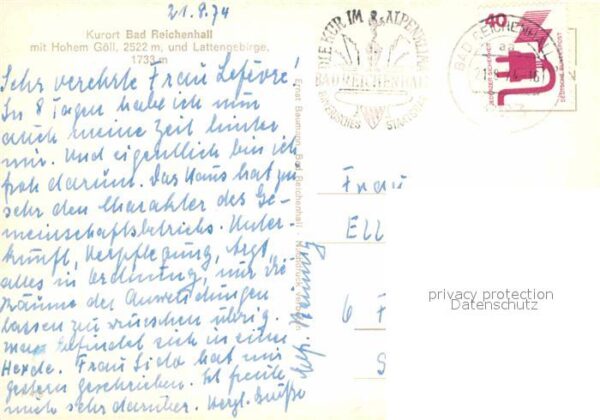 21.8.74
Kurort Bad Reichenhall
mit Hohem Göll, 2522 m, und Lattengebirge,
1733 m
Sehr verehrte Frau Lefèvre!
In 8 Tagen habe ich nun
auch meine Zeit hinter
mir. Und eigentlich bin ich
froh darum. Das Haus hat zu
sehr den Charakter des Ge-
meinschaftsbetriebs. Unter-
kunft, Verpflegung, Arzt,
alles in Ordnung, nur die
Räume der Anwendungen
lassen zu wünschen übrig.
man befindet sich in einer
Herde. Frau Lido hat mir
gestern geschrieben. Ich freute
mich sehr darüber. Herzl. Grüße
Ernst Baumann, Bad Reichenhall
DIE KUR IM ALPENKLIMA
BAD REICHENHALL
BAYERISCHES STAATSBAD
BAD REICHENHALL
21.8.74
40
DEUTSCHE BUNDESPOST
Frau
ELL
6 F
S
privacy protection
Datenschutz